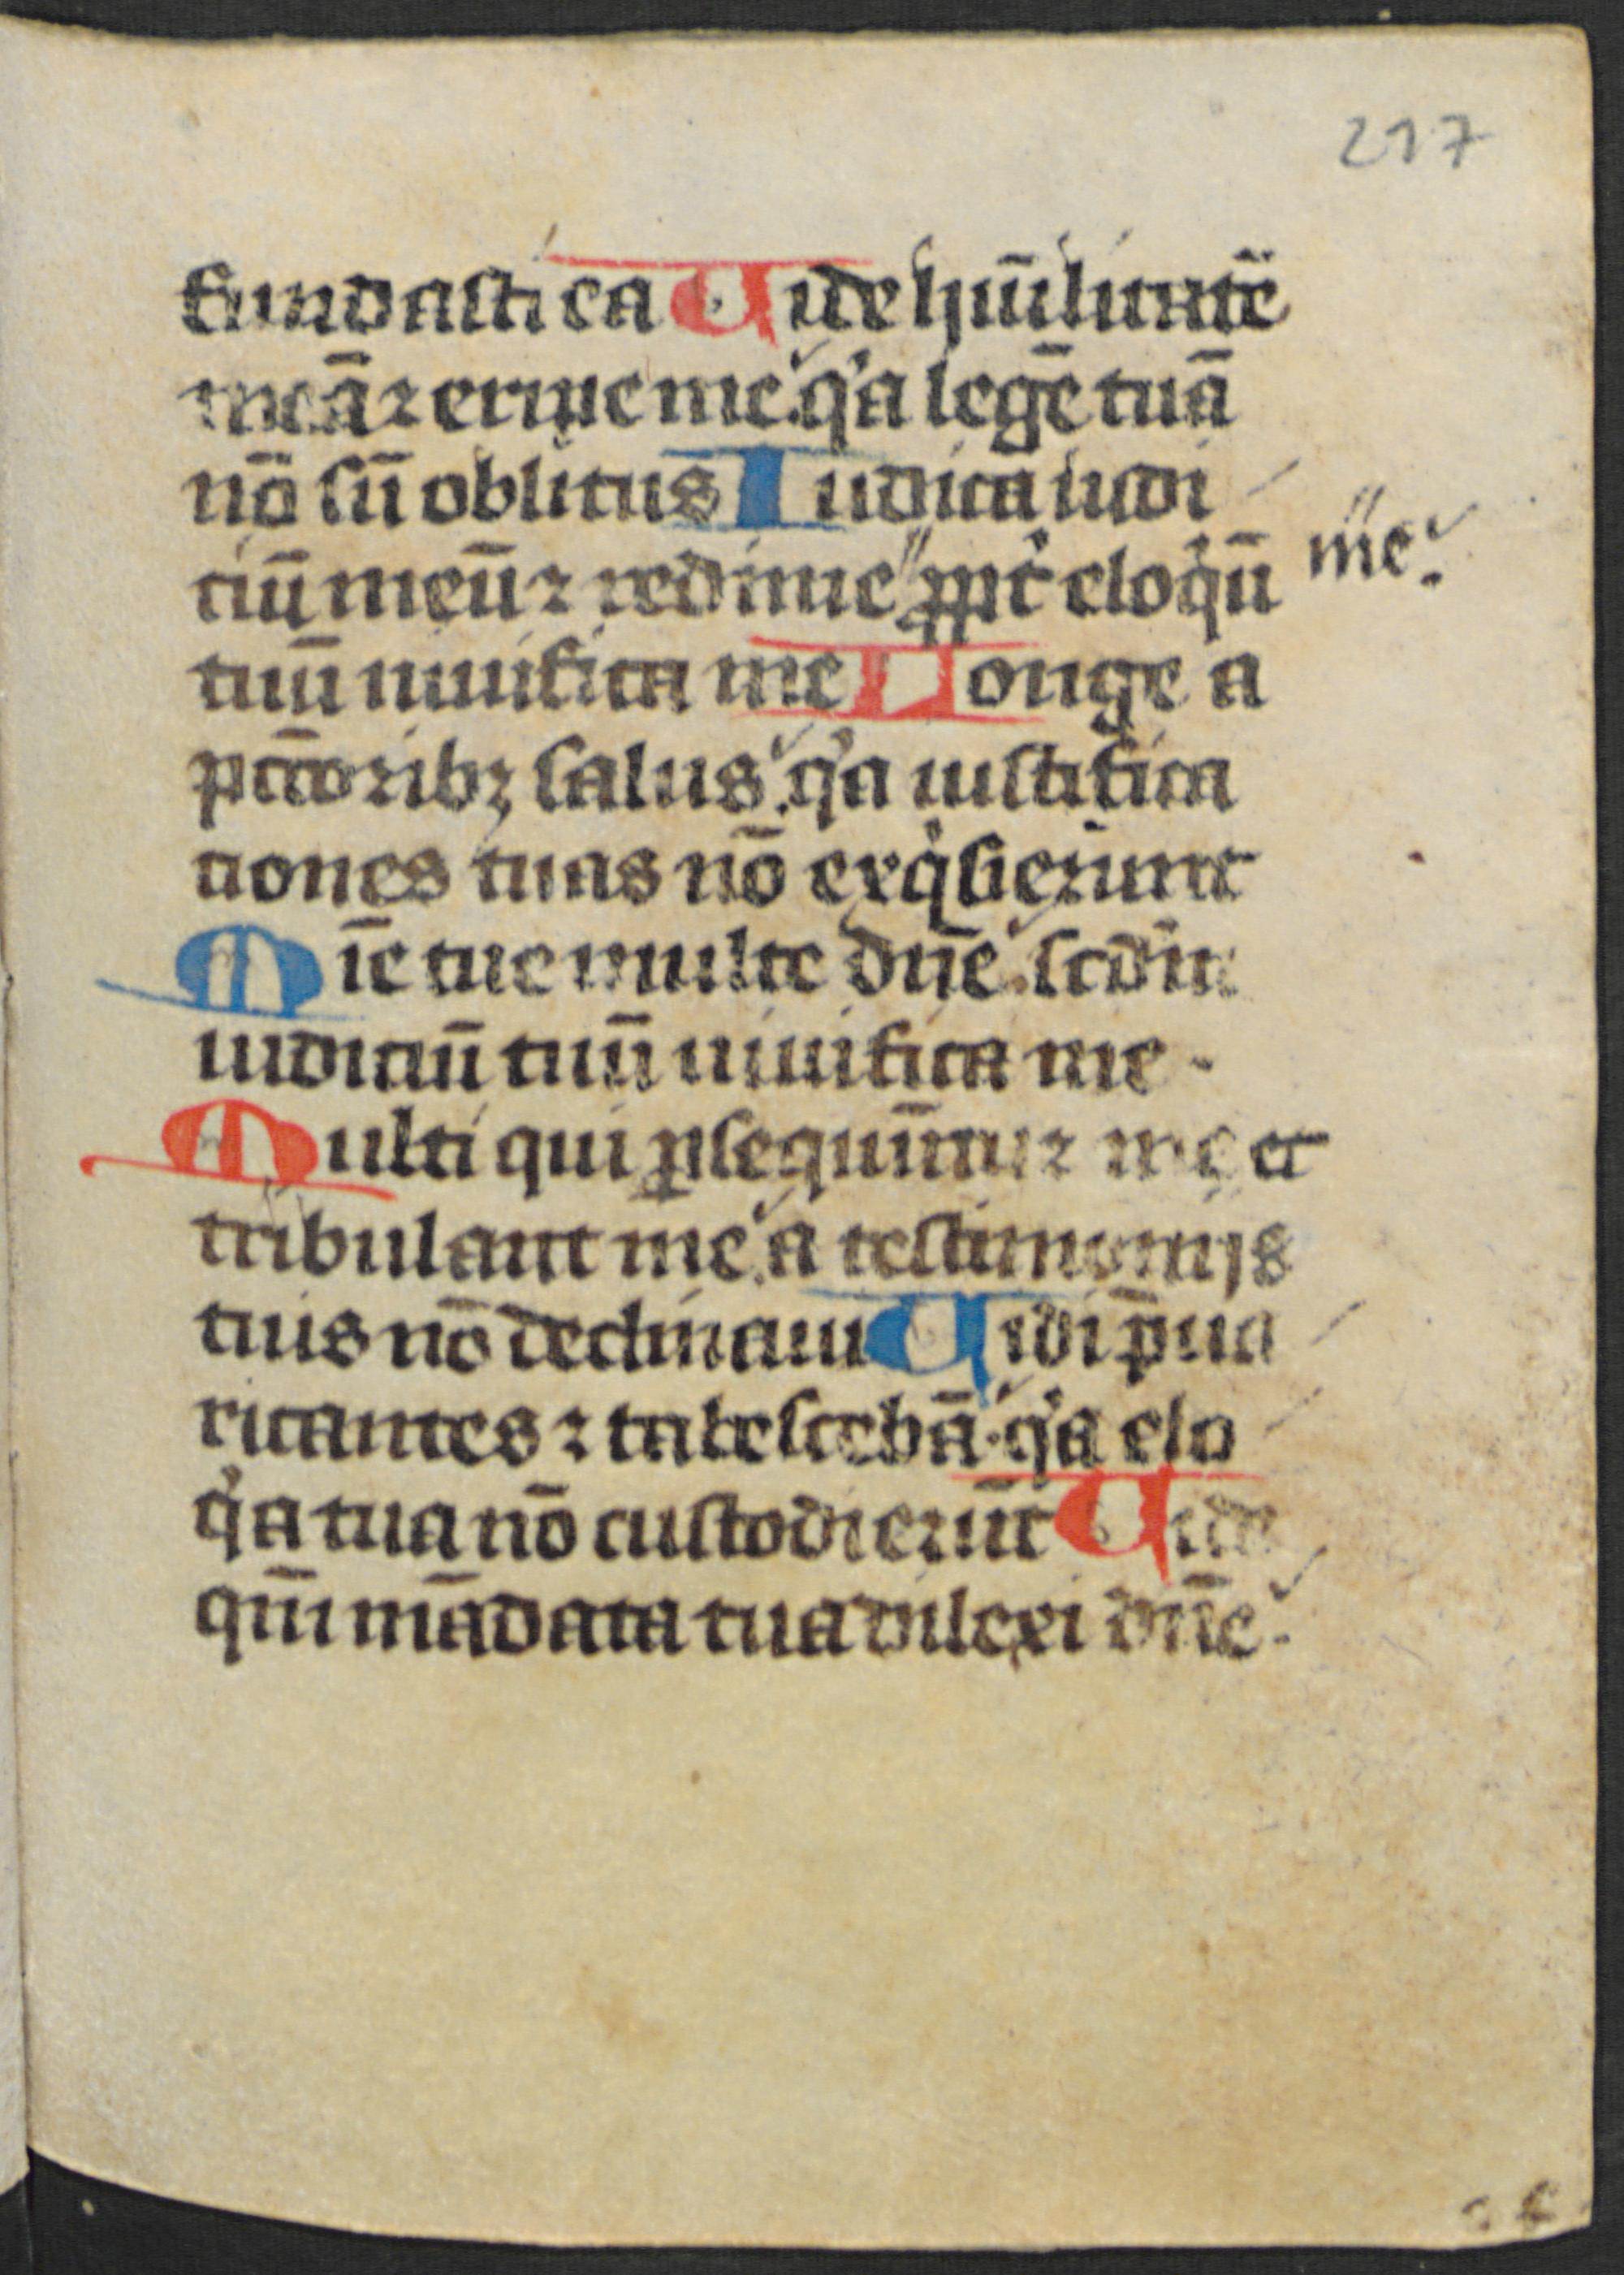 217
fundasti ea Vide hūilitatē
meā ⁊ eripe me. qͥa legē tuā
nō sū oblitus Iudica iudi
ciū meū ⁊ redime ꝓpt̉ eloqͥū me.
tuū uiuifica me Longe a
pc̄toribꝫ salus. qͥa iustifica
tiones tuas nō exqͥsierunt
Mīe tue multe dn̄e. scdm̄
iudiciū tuū uiuifica me.
Multi qui ꝑsequūtur me et
tribulant me. a testimonijs
tuis nō declinaui Vidi p̄ua
ricantes ⁊ tabescebā. qͥa elo
qͥa tua nō custodierūt Vide
qm̄ mādata tua dilexi dn̄e.